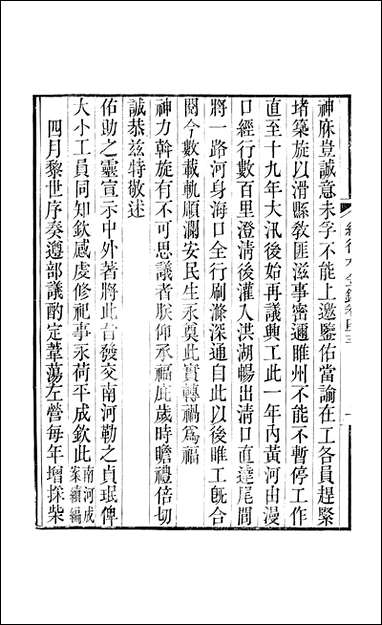 神庥豈誠意未孚不能上邀鑒佑當諭在工各員趕緊
堵築旋以滑縣敎匪滋事密邇睢州不能不暫停工作
直至十九年大汛後始再議興工此一年內黃河由漫
口經行數百里澄清後灌入洪湖暢出清口直達尾閭
將一路河身海口全行刷滌深通自此以後睢工旣合
閱今數載軌順瀾安民生永奠此實轉禍爲福
神力斡旋有不可思議者朕仰承福庇歲時瞻禮倍切
誠恭玆特敬述
佑助之靈宣示中外著將此旨發交南河勒之貞珉俾
大小工員同知欽感虔修祀事永荷平成欽此南河成案續編
四月黎世序奏遵部議酌定葦蕩左營每年增採柴
續行水金鑑卷四三
一